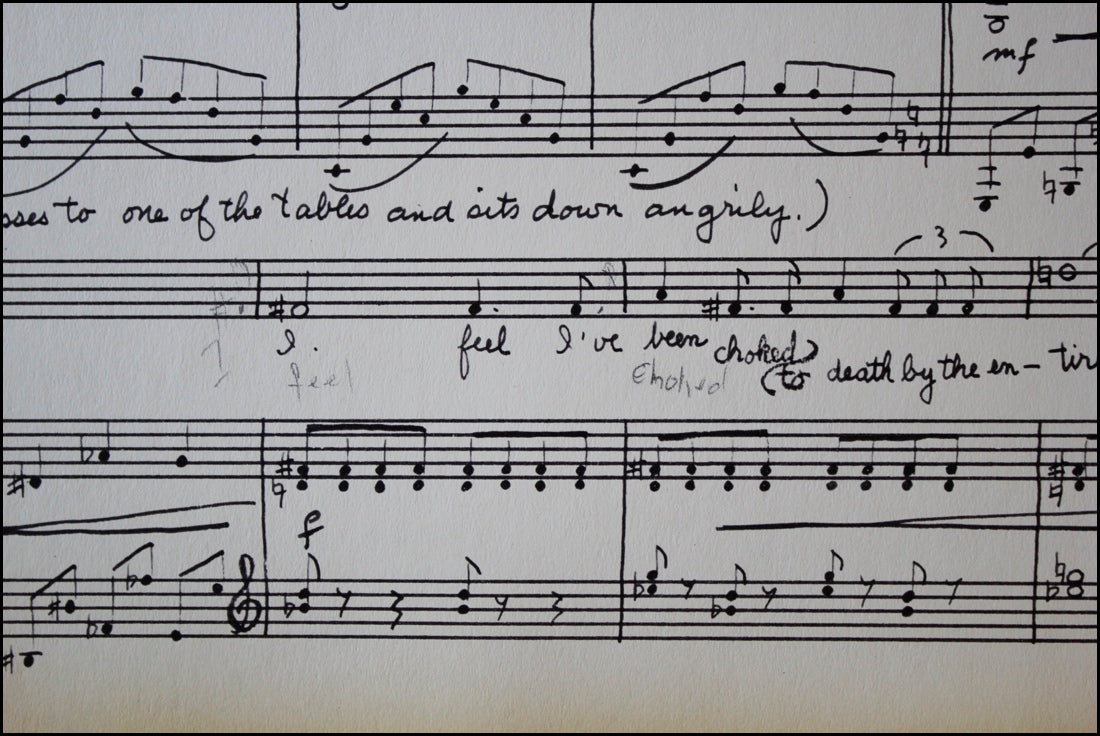 mf
sses to one of the tables and sits down angrily.)
3
I feel I've been choked
(to death by the en- tir
feel choked
f